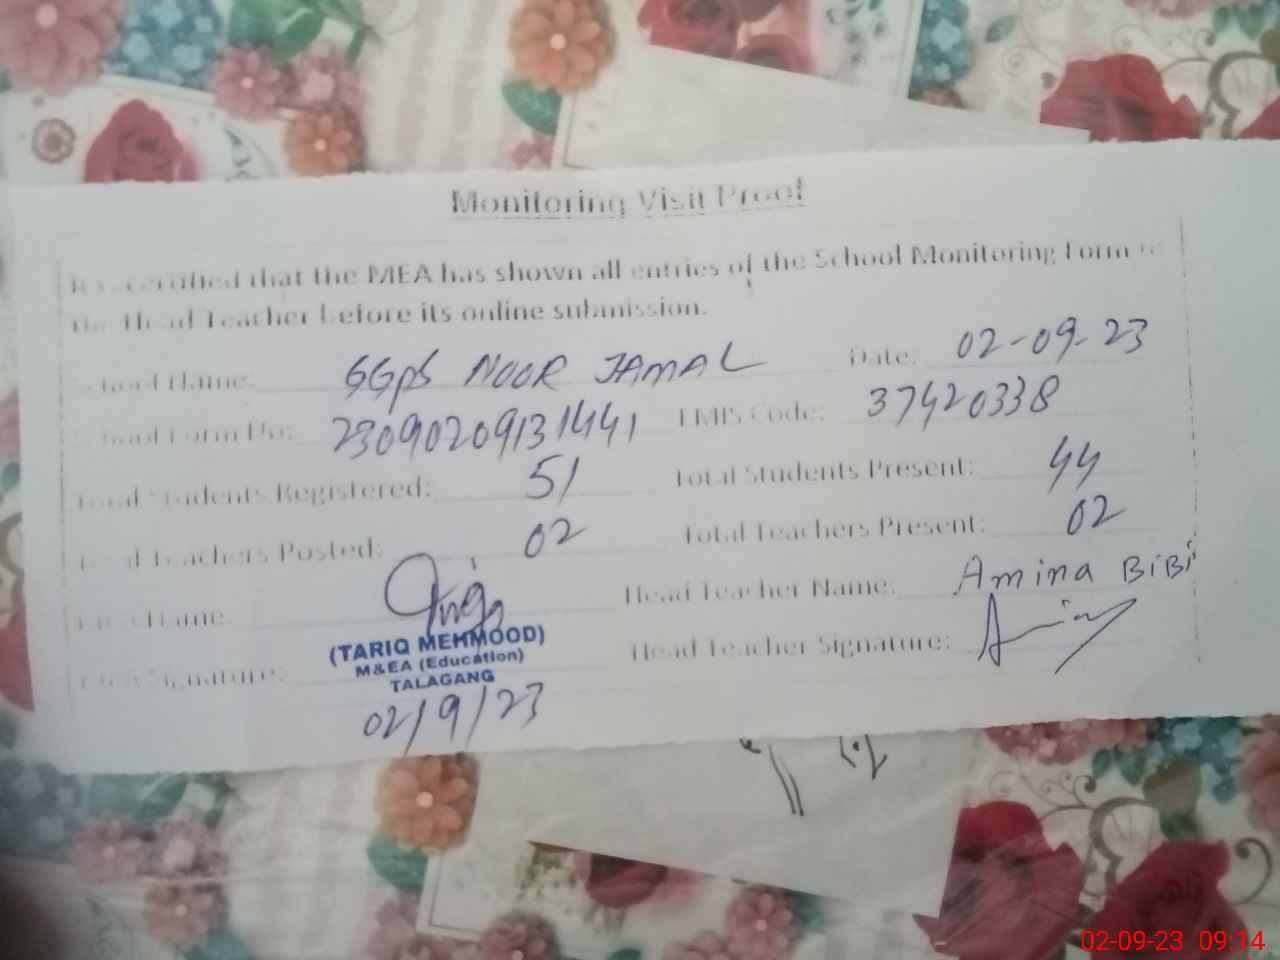 Monitoring Visit Proof
It is certified that the MEA has shown all entries of the School Monitoring Form to
the Head Teacher before its online submission.
School Name: GGPS NOOR JAMAL Date: 02-09-23
School Form No: 23090209131441 EMIS Code: 37420338
Total Students Registered: 51 Total Students Present: 44
Total Teachers Posted: 02 Total Teachers Present: 02
MEA Name: Head Teacher Name: Amina BiBi
(TARIQ MEHMOOD)
MEA Signature: Head Teacher Signature:
M&EA (Education)
TALAGANG
02/9/23
02-09-23 09:14